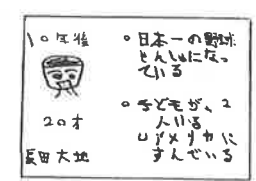 10年後
20才
長田大地
○日本一の野球
せんしゅになっ
ている
○子どもが、2
人いる
アメリカに
すんでいる